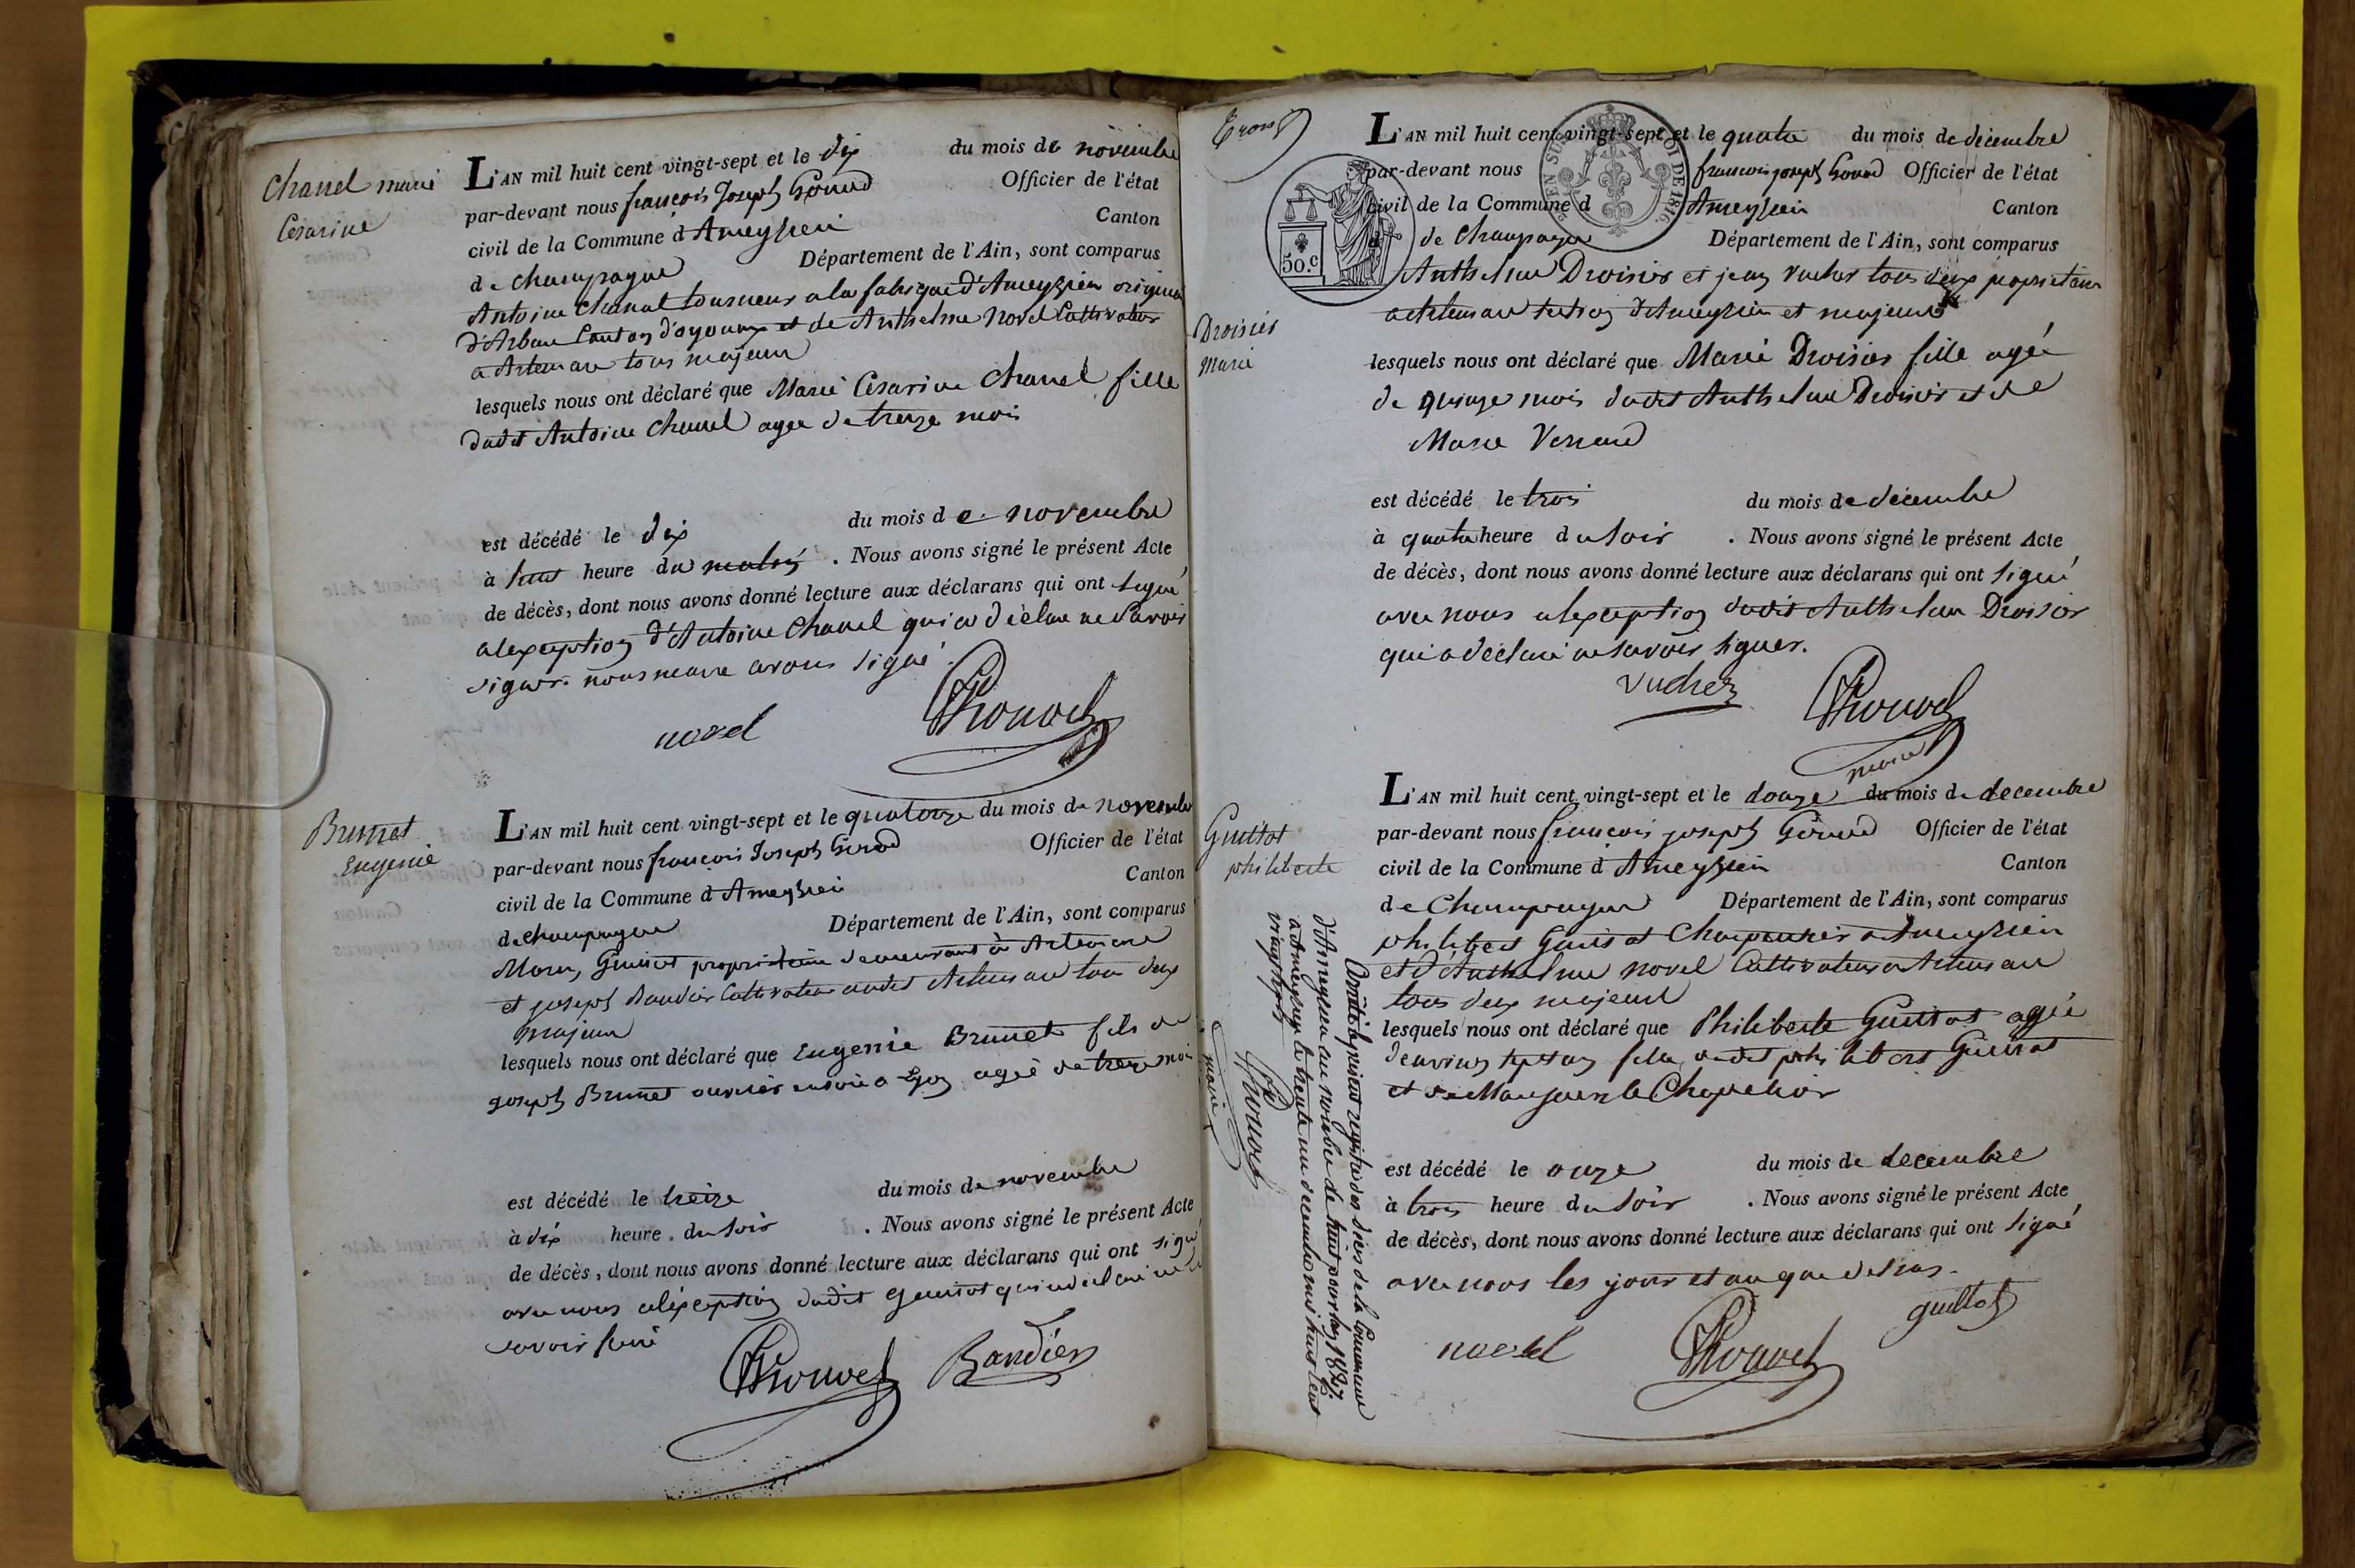 Chanel marie
Césarine
L'AN mil huit cent vingt-sept et le dix du mois de novembre
par-devant nous françois Joseph Officier de l'état
civil de la Commune d'Ameyzieu Canton
de champagne Département de l'Ain, sont comparus
Antoine Chanel tourneur a la fabrique d'Ameyzieu
d'Arbent Canton d'oyonnax et de Anthelme Novel Cultivateur
a Artemare tous majeurs
lesquels nous ont déclaré que Marie Césarine Chanel fille
dudit Antoine Chanel agee de treize mois
est décédé le dix du mois de novembre
à huit heure du matin. Nous avons signé le présent Acte
de décès, dont nous avons donné lecture aux déclarans qui ont signé
a lexception d'Antoine Chanel qui a déclare ne savoir
signer. nous maire avons signé
novel
Brunet
Eugenie
L'AN mil huit cent vingt-sept et le quatorze du mois de novembre
par-devant nous françois Joseph Officier de l'état
civil de la Commune d'Ameyzieu Canton
de champagne Département de l'Ain, sont comparus
propriétaire demeurant à Artemare
et joseph Baudier Cultivateur audit Artemare tous deux
majeurs
lesquels nous ont déclaré que Eugenie Brunet fils de
joseph Brunet ouvrier en soie a Lyon agée de treize mois
est décédé le treize du mois de novembre
à dix heure du soir. Nous avons signé le présent Acte
de décès, dont nous avons donné lecture aux déclarans qui ont signé
avec nous a léxception dudit guillot qui a déclaré ne
savoir
Baudier
trois
SEN SUS
LOI DE 1816.
50.c
L'AN mil huit cent vingt-sept et le quatre du mois de décembre
par-devant nous francois joseph Officier de l'état
civil de la Commune d Ameyzieu Canton
de Champagne Département de l'Ain, sont comparus
Anthelme Droisier et jean vucher tous deux propriétaires
a Artemare section d'Ameyzieu et majeurs
Droisier
Marie
lesquels nous ont déclaré que Marie Droisier fille agée
de quinze mois dudit Anthelme Droisier et de
Marie
est décédé le trois du mois de décembre
à quatre heure du soir. Nous avons signé le présent Acte
de décès, dont nous avons donné lecture aux déclarans qui ont signé
avec nous a lexception dudit Anthelme Droisier
qui a déclaré ne savoir signer.
vucher
maire
Guillot
philiberte
L'AN mil huit cent vingt-sept et le douze du mois de decembre
par-devant nous francois joseph Officier de l'état
civil de la Commune d'Ameyzieu Canton
de Champagne Département de l'Ain, sont comparus
philibert Guillot Charpentier a Ameyzieu
et d'Anthelme novel Cultivateur a Artemare
tous deux majeurs
lesquels nous ont déclaré que Philiberte Guillot agée
d'environ sept ans fille dudit philibert Guillot
et de Marguerite Chapelier
est décédé le onze du mois de decembre
à trois heure du soir. Nous avons signé le présent Acte
de décès, dont nous avons donné lecture aux déclarans qui ont signé
avec nous les jours et an que dessus.
novel
guillot
arrêté le présent registre des décès de la Commune
d'Ameyzieu au nombre de huit pour l'an 1827.
a Ameyzieu le trente un decembre mil huit cent
vingt sept
maire